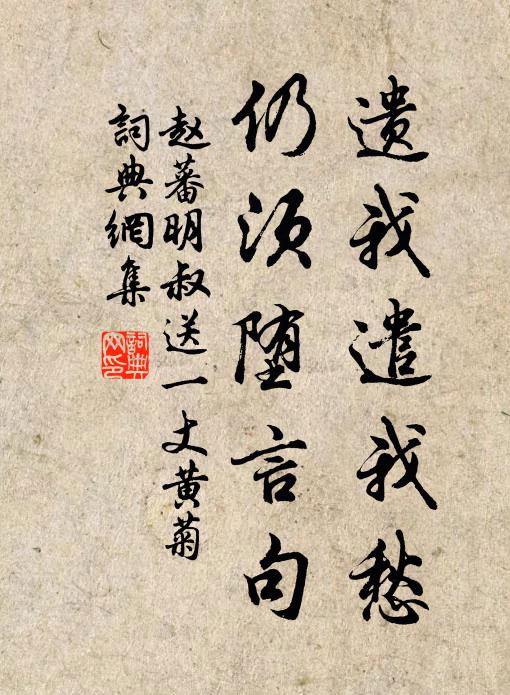 遗我遣我愁
仍须堕言句
赵蕃明叔送一丈黄菊
詞典網集
詞典网印